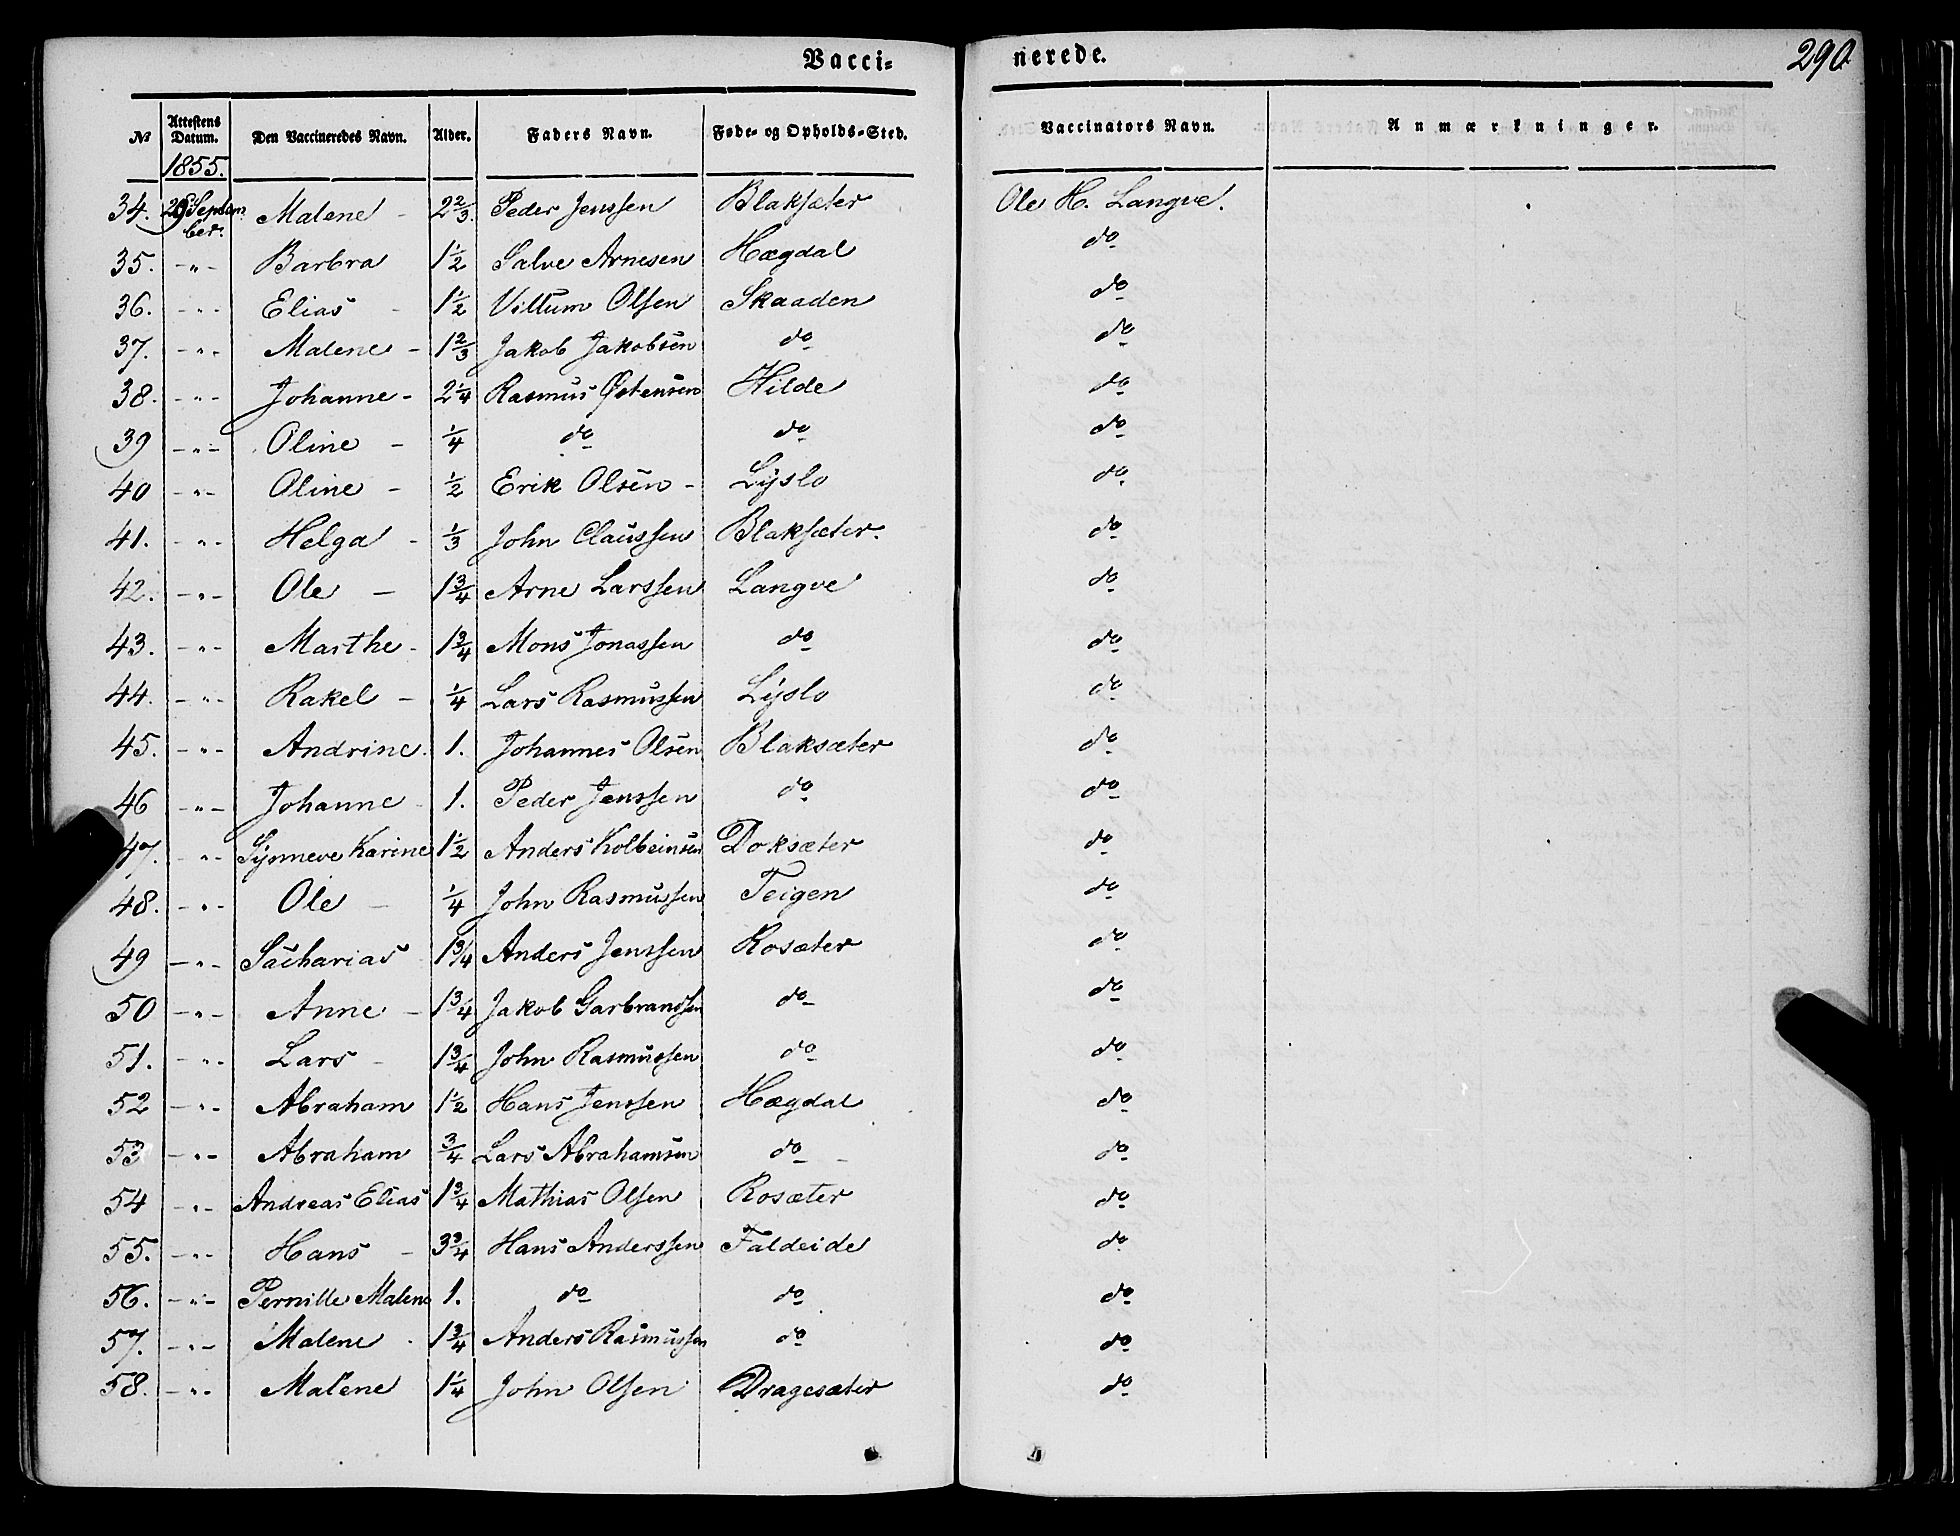 Vacci-nerede. 290
№ Attestens Datum. Den Vaccineredes Navn. Alder. Faders Navn. Føde- og Opholds-Sted. Vaccinators Navn. Anmærkninger.
1855.
34. 29 September. Malene - 2 2/3. Peder Jenssen Blaksæter Ole H. Langve.
35. -"- Barbra 1 1/2 Salve Arnesen Hægdal do
36. -"- Elias - 1 1/2 Villum Olsen Skaaden do
37. -"- Malene - 1 2/3 Jakob Jakobsen do do
38. -"- Johanne - 2 1/4 Rasmus Østensen Hilde do
39 -"- Oline - 1/4 do do do
40 -"- Oline - 1/2 Erik Olsen - Lyslo do
41. -"- Helga - 1/3 John Claussen Blaksæter. do
42. -"- Ole - 1 3/4 Arne Larssen Langve do
43. -"- Marthe - 1 3/4 Mons Jonassen do do
44. -"- Rakel - 1/4 Lars Rasmussen Lyslo do
45. -"- Andrine. 1. Johannes Olsen Blaksæter do
46 -"- Johanne - 1. Peder Jenssen do do
47. -"- Synneve Karine 1 1/2 Anders Kolbeinsen Doksæter do
48. -"- Ole - 1/4 John Rasmussen Teigen do
49 -"- Sacharias 1 3/4 Anders Jenssen Rosæter do
50 -"- Anne - 1 3/4 Jakob Garbrandsen do do
51. -"- Lars - 1 3/4 John Rasmussen do do
52 -"- Abraham 1 1/2 Hans Jenssen Hægdal do
53 -"- Abraham 3/4 Lars Abrahamsen do - do
54 -"- Andreas Elias 1 3/4 Mathias Olsen Rosæter do
55. -"- Hans - 3 3/4 Hans Anderssen Faldeide do
56. -"- Pernille Malene 1. do do do
57. -"- Malene - 1 3/4 Anders Rasmussen do do
58. -"- Malene 1 1/4 John Olsen Dragesæter do